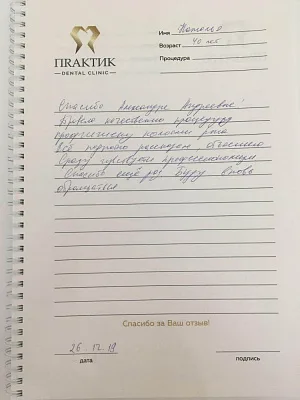 ПRAKTИК
DENTAL CLINIC
Имя Наталья
Возраст 40 лет
Процедура
Спасибо Александре Андреевне!
Провела качественно процедуру
профгигиену полости рта
Всё подробно рассказала, объяснила
Сразу чувствуется профессионализм
Спасибо ещё раз буду вновь
обращаться
Спасибо за Ваш отзыв!
26.12.19
дата
подпись